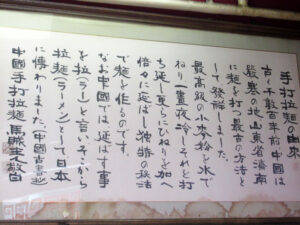 手打拉麺の由来
古く千数百年前中国は
厳寒の地山東省済南
に麺を打つ最古の方法と
して発祥しました。
最高級の小麦粉を水で
ねり一昼夜冷しそれを打
ち延し更らにひねりを加へ
倍々に延ばし独特の秘法
で麺を作るのです。
なお中国では延ばす事
を拉(ラー)と言い、そこから
拉麺(ラーメン)として日本
に傳わりました(中國古書
中國手打拉麺 敬白